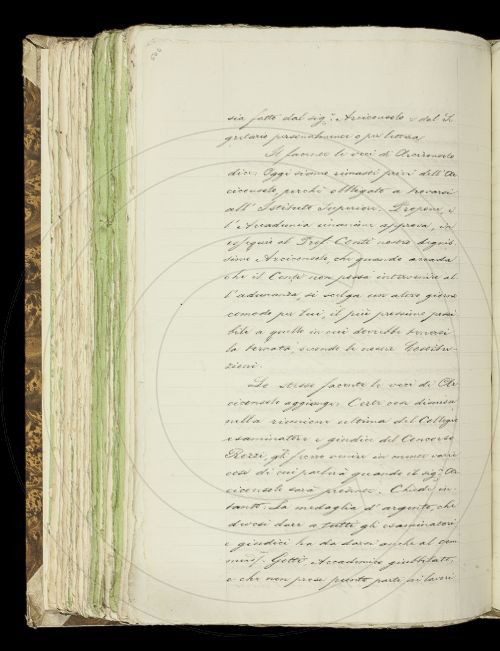 sia fatto dal sig.r Arciconsolo o dal Se
gretario personalmente o per lettera.
Il facente le veci di Arciconsolo
dice: Oggi siamo rimasti privi dell'Ar
ciconsolo, perchè obbligato a trovarsi
all'Istituto Superiore. Propone, e
l'Accademia unanime approva, in
ossequio al Prof. Conti nostro dignis
simo Arciconsolo, che quando accada
che il Conti non possa intervenire al
l'adunanza, si scelga un altro giorno
comodo per lui, il più prossimo possi
bile a quello in cui dovrebbe tenersi
la tornata secondo le nuove Costitu
zioni.
Lo stesso facente le veci di Ar
ciconsolo aggiunge: Certe cose
nella riunione ultima del Collegio
esaminatore e giudice del Concorso
Rezzi, gli fecero venire in mente varie
cose di cui parlerà quando il sig.r Ar
ciconsolo sarà presente. Chiede in
tanto: La medaglia d'argento, che
devesi dare a tutti gli esaminatori
e giudici ha da darsi anche al com
Gotti, Accademico giubilato,
e che non prese punto parte ai lavori